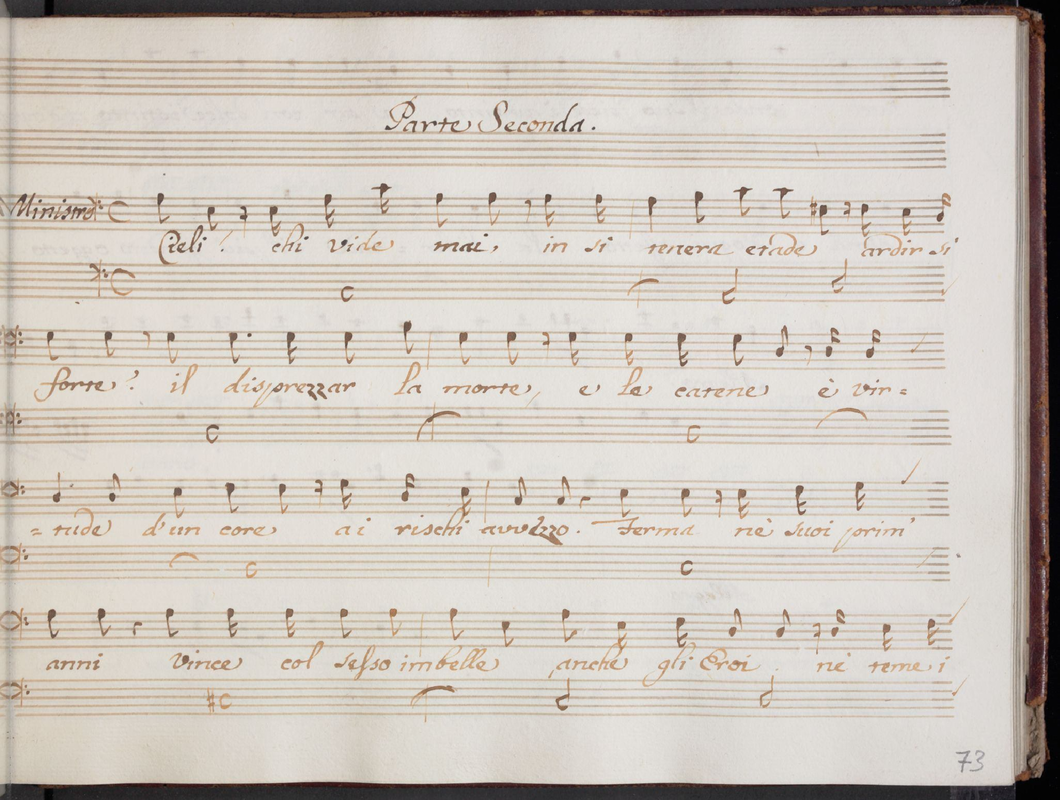 Parte Seconda.
Ministro
Cieli! chi vide mai, in si tenera etade ardir si
forte? il disprezzar la morte, e le catene è vir=
=tude d'un core ai rischi avvezzo. Ferma nè suoi prim'
anni vince col sesso imbelle anche gli Eroi nè teme i
73